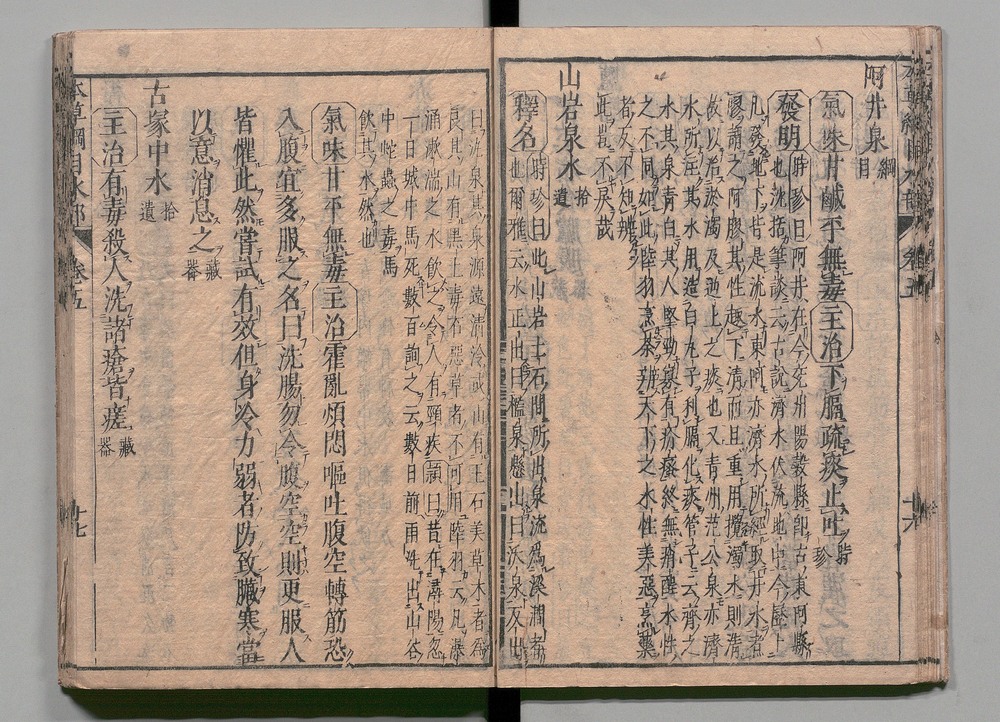 阿井泉 綱目
氣味甘鹹平無毒主治下膈疏痰止吐 時珍
發明 時珍曰阿井在今兗州陽穀縣即古東阿縣
也沈括筆談云古說濟水伏流地中今歷下
凡發地下皆是流水東阿亦濟水所經取井水煮
膠謂之阿膠其性趣下清而且重用攪濁水則清
故以治淤濁及逆上之痰也又青州范公泉亦濟
水所注其水用造白丸子利膈化痰管子云齊之
水其泉青白其人堅勁寡有疥瘙終無痟醒水性
之不同如此陸羽烹茶辨天下之水性美惡烹藥
者反不知辨
此豈不戾哉
山岩泉水 拾遺
釋名 時珍曰此山岩土石間所出泉流為溪澗者
也爾雅云水正出曰檻泉懸出曰沃泉仄出
曰氿泉其泉源遠清冷或山有玉石美草木者為
良其山有黑土毒石惡草者不可用陸羽云凡瀑
涌漱湍之水飲之令人有頸疾頴曰昔在潯陽忽
一日城中馬死數百詢之云數日前雨洗出山谷
中蛇蟲之毒馬
飲其水然也
氣味甘平無毒主治霍亂煩悶嘔吐腹空轉筋恐
入腹宜多服之名曰洗腸勿令腹空空則更服人
皆懼此然嘗試有效但身冷力弱者防致臟寒當
以意消息之 藏器
古塚中水 拾遺
主治有毒殺人洗諸瘡皆瘥 藏器
本草綱目水部 卷五 十七